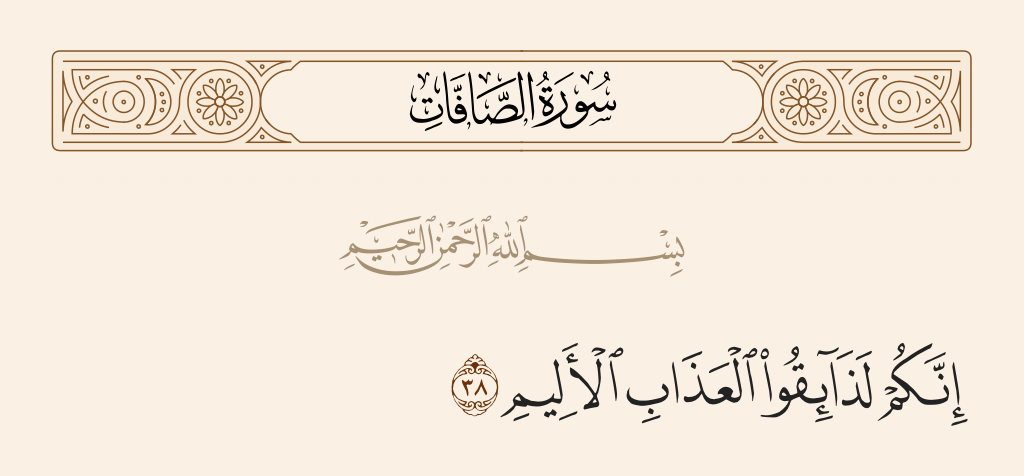 سُورَةُ الصَّافَّاتِ
بِسْمِ ٱللَّهِ ٱلرَّحْمَٰنِ ٱلرَّحِيمِ
إِنَّكُمْ لَذَآئِقُوا۟ ٱلْعَذَابِ ٱلْأَلِيمِ ٣٨